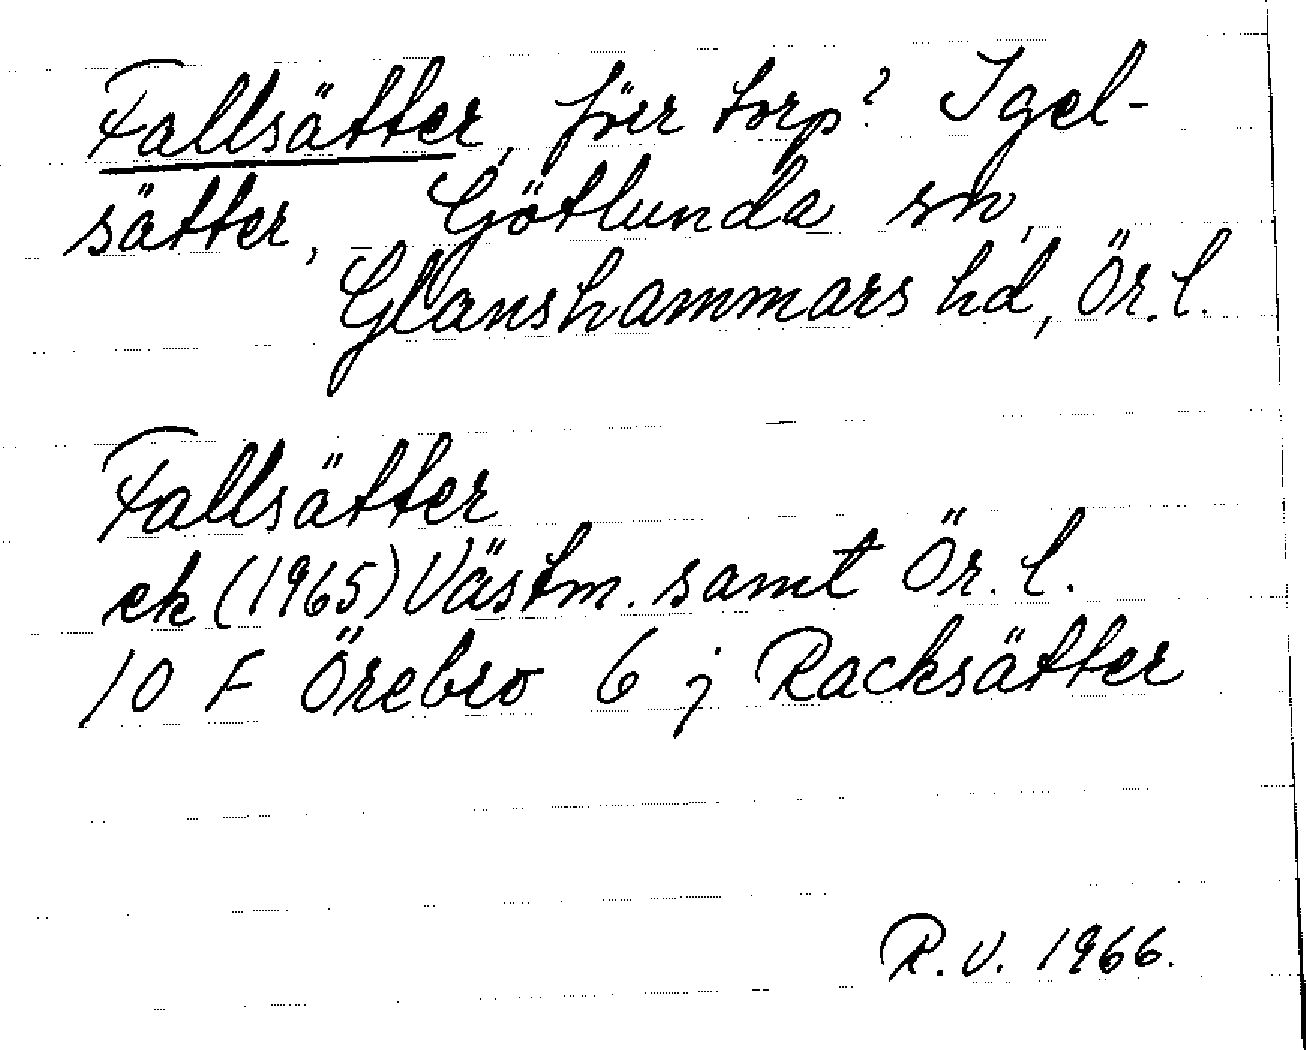 Fallsätter, förr torp? Igel-
sätter, Götlunda sn,
Glanshammars hd, Ör. l.
Fallsätter
ek (1965) Västm. samt Ör. l.
10 F Örebro 6 j Racksätter
R.V. 1966.